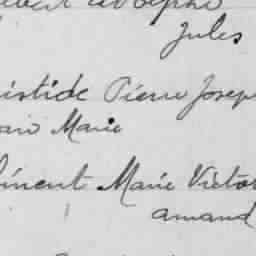 Jules
istide Pierre Josep
Marie
incent Marie Victo
amand